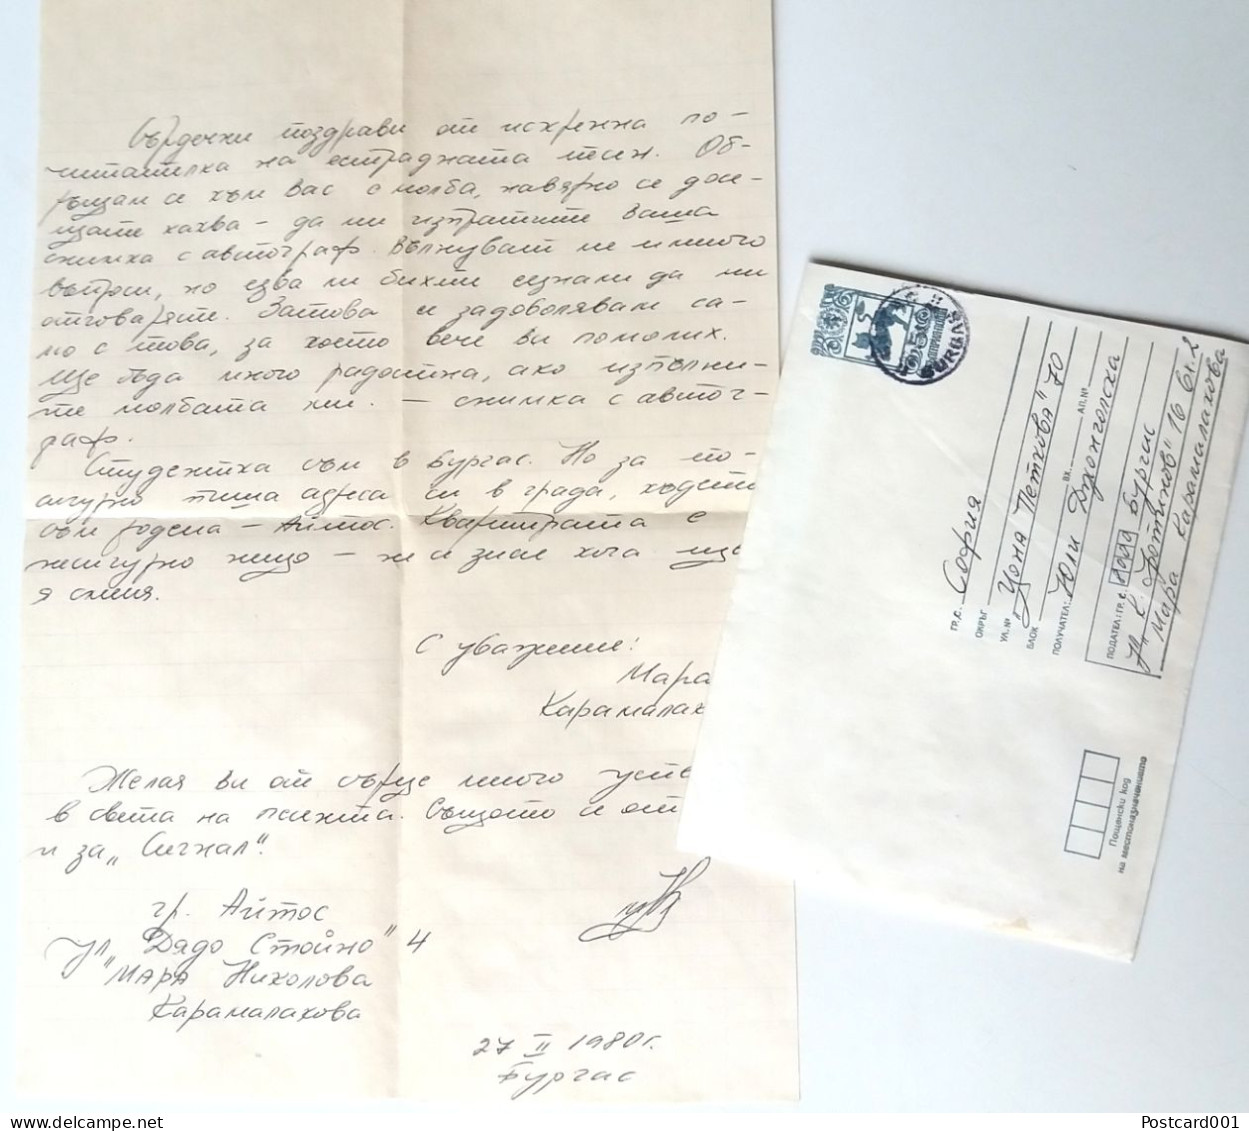 Сърдечни поздрави от искренна по-
читателка на естрадната песен. Об-
ръщам се към Вас с молба, навярно се досе-
щате каква – да ми изпратите Ваша
снимка с автограф. Вълнуват ме и много
въпроси, но едва ли бихте седнали да ми
отговаряте. Затова се задоволявам са-
мо с това, за което вече ви помолих.
Ще бъда много радостна, ако изпълни-
те молбата ми. – снимка с автог-
раф.
Студентка съм в Бургас. Но за по-
сигурно пиша адреса си в града, където
съм родена – Айтос. Квартирата е
несигурно нещо – не се знае кога ще
я сменя.
С уважение:
Мара
Карамалак
Желая ви от сърце много успе
в света на песента. Същото се от
и за „Сигнал".
гр. Айтос
ул „Дядо Стойно" 4
Мара Николова
Карамалакова
27 II 1980г.
Бургас
BURGAS
гр.с. София
ОКРЪГ
УЛ. № „Цона Петкова" 70
БЛОК ВХ. АП. №
ПОЛУЧАТЕЛ:
ПОДАТЕЛ: ГР. с. 8000 Бургас
16 ет. 2
Мара Карамалакова
Пощенски код
на местоназначението
Postcard001